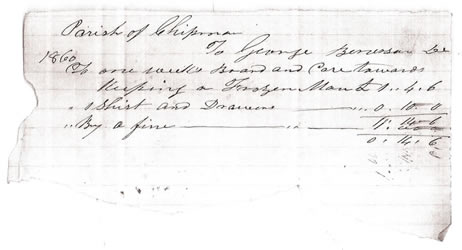 Parish of Chipman
1860 To George Dr
To one weeks Board and Care towards
Keeping a Frozen Man £ 1.. 4. 6
" 1 Shirt and Drawers — 0. 10. 0
1. 14. 6
" By a fine — " —
0. 14. 6